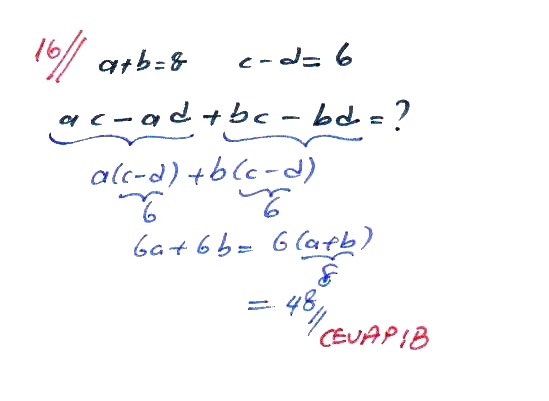 16// a+b=8 c-d=6
ac-ad+bc-bd=?
a(c-d)+b(c-d)
6 6
6a+6b= 6(a+b)
8
= 48//
CEVAP/B